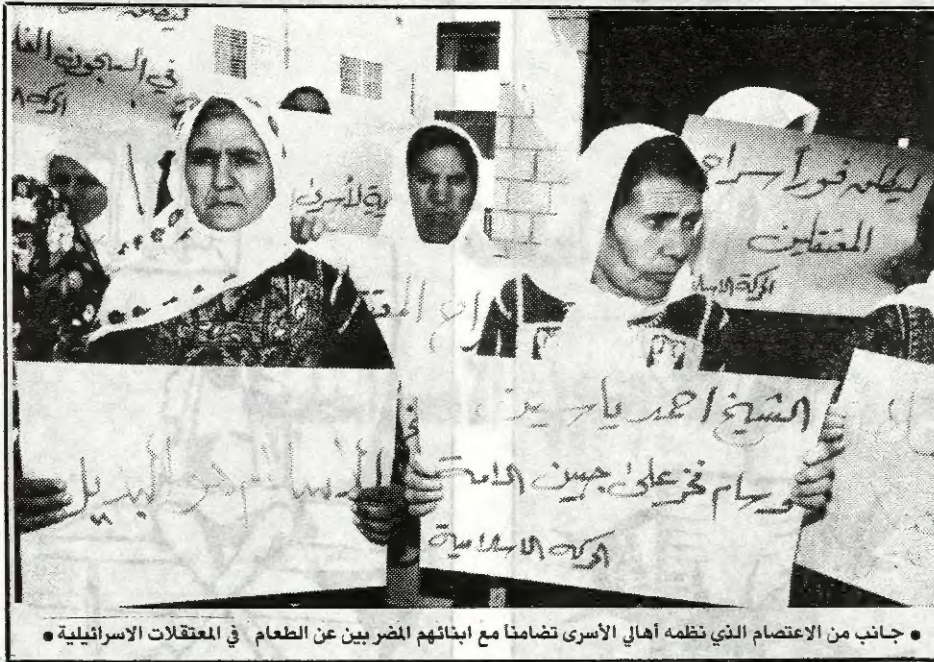 في السجون
الحركة
ليطلق فوراً سراح
المعتقلين
الحركة الاسلا
ية الأسرى
اح المعتق
الاسلام هو البديل
الشيخ احمد ياسين
وسام فخر على جبين الامة
الحركة الاسلامية
• جانب من الاعتصام الذي نظمه أهالي الأسرى تضامناً مع ابنائهم المضربين عن الطعام في المعتقلات الاسرائيلية •